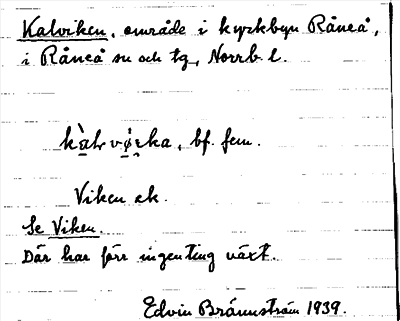 Kalviken, område i kyrkbyn Råneå,
i Råneå sn och tg, Norrb. l.
bf. fem.
Viken ek.
Se Viken.
Där har förr ingenting växt.
Edvin Brännström 1939.